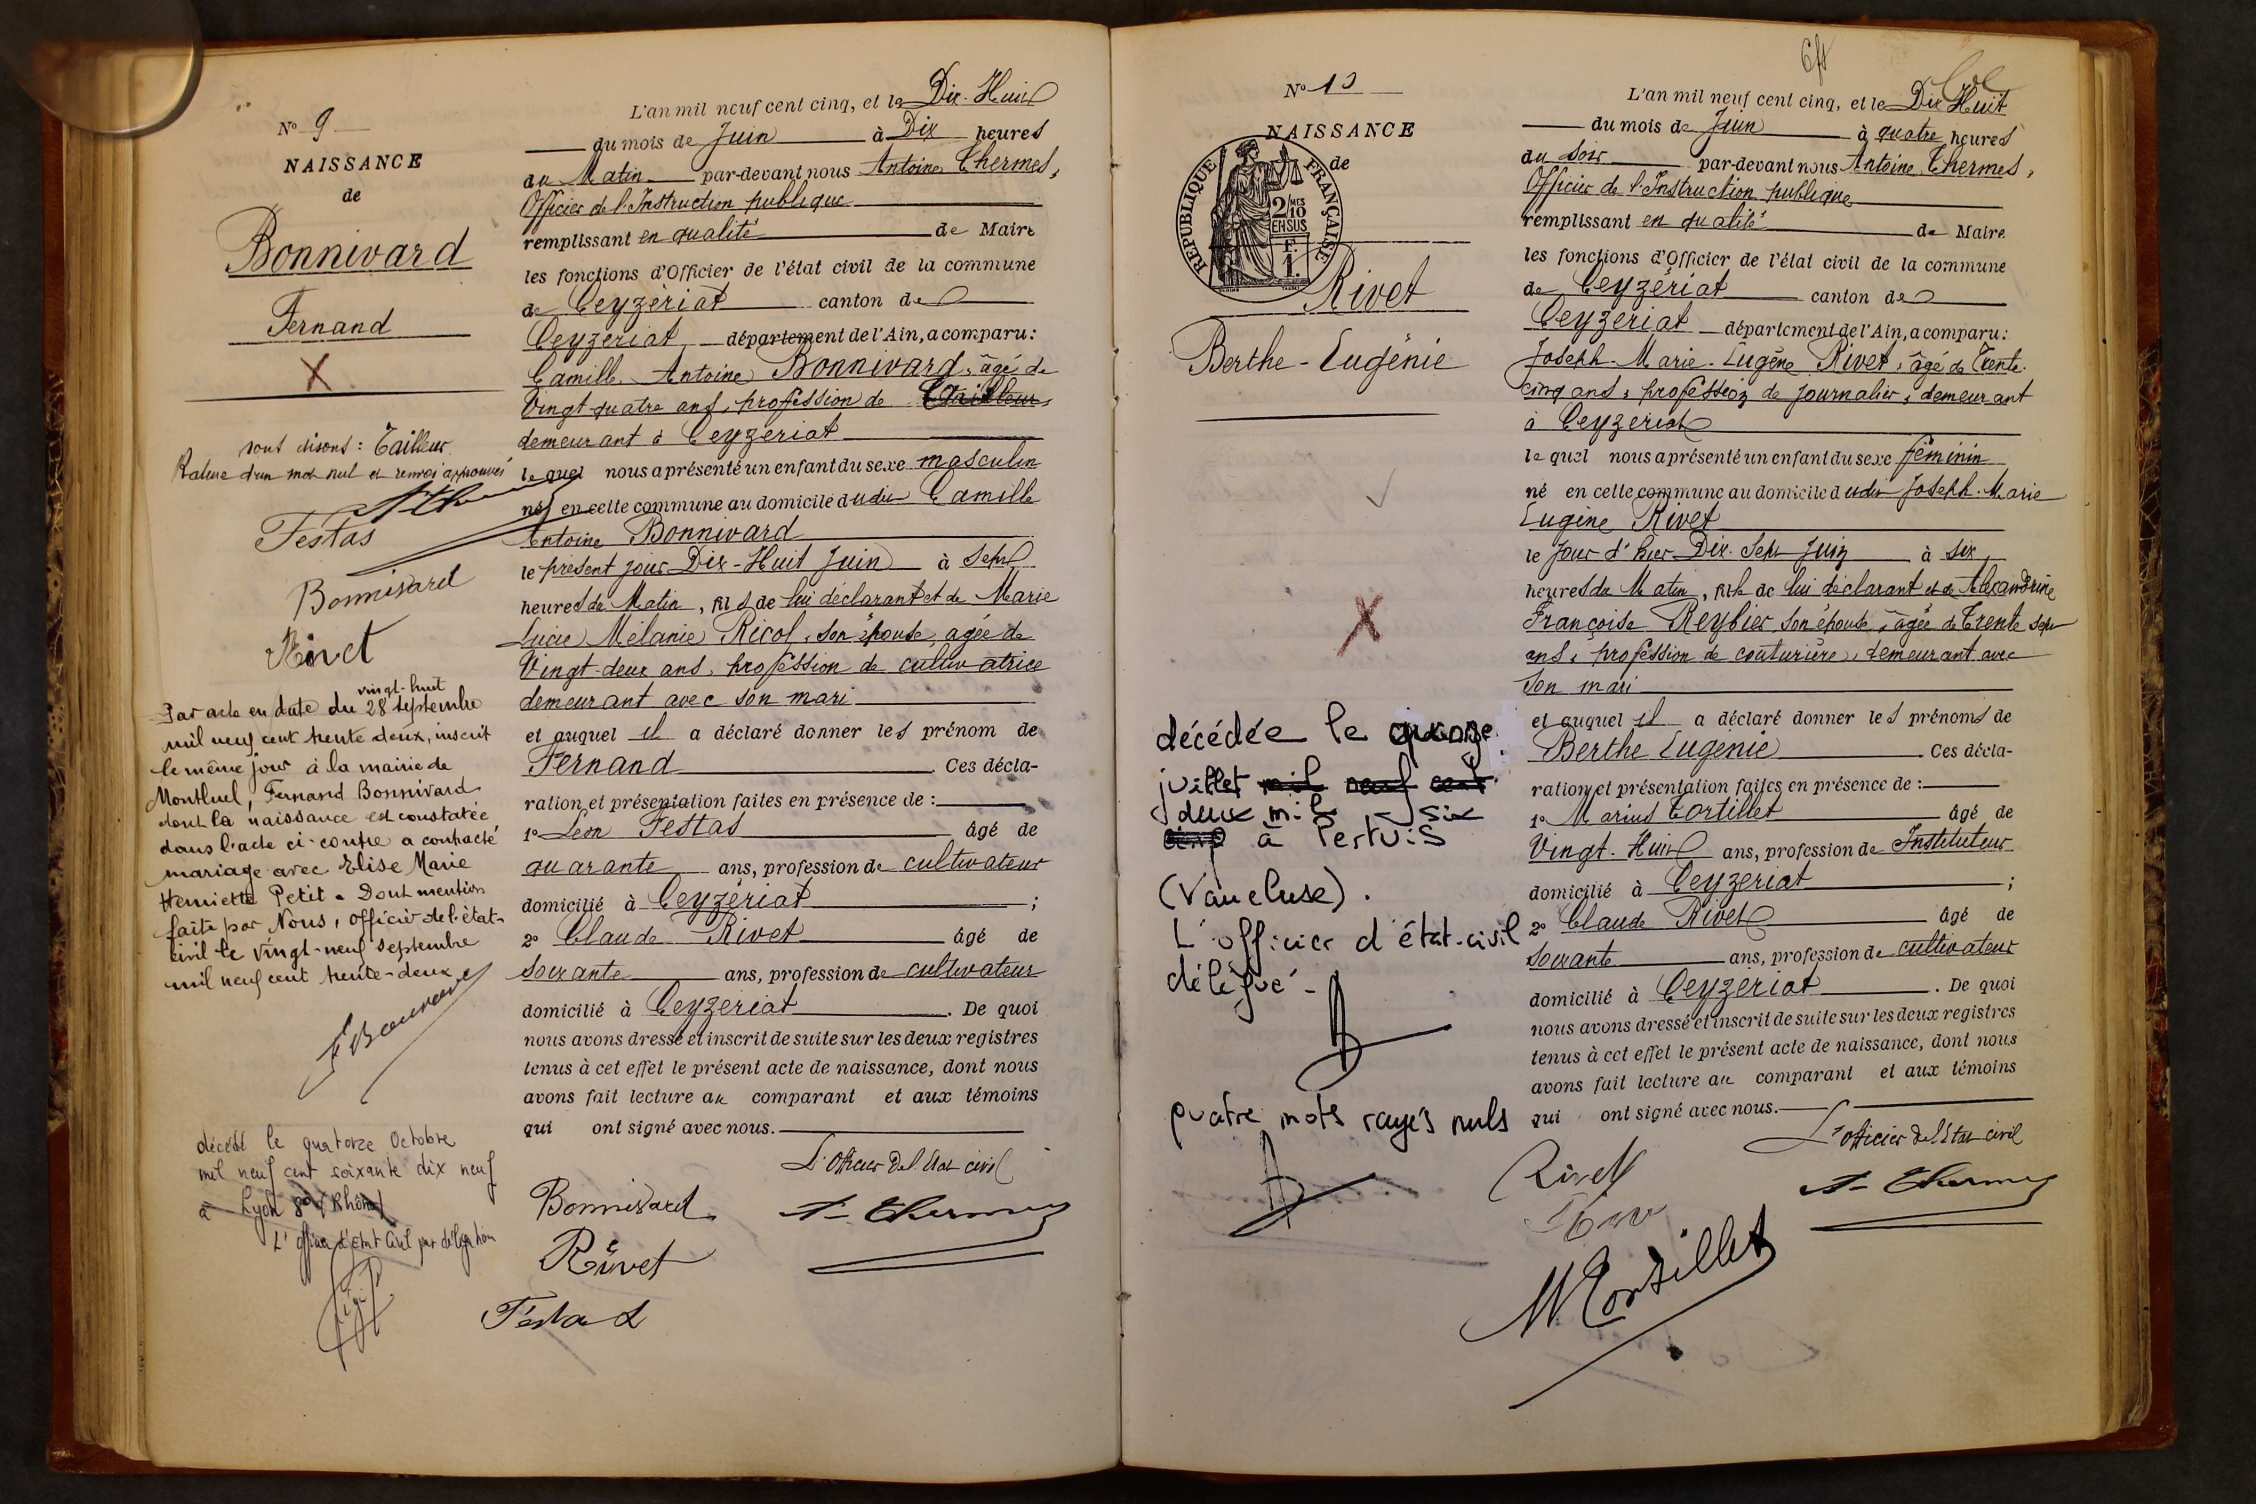 N° 9
NAISSANCE
de
Bonnivard
Fernand
X
nous disons : Tailleur
Rature d'un mot nul et renvoi approuvés
Festas
Bonnivard
Rivet
vingt-huit
Par acte en date du 28 septembre
mil neuf cent trente deux, inscrit
le même jour à la mairie de
Montluel, Fernand Bonnivard
dont la naissance est constatée
dans l'acte ci-contre a contracté
mariage avec Elise Marie
Henriette Petit. Dont mention
faite par Nous, officier de l'état-
civil le vingt-neuf septembre
mil neuf cent trente-deux
décédé le quatorze Octobre
mil neuf cent soixante dix neuf
à Lyon 8e (Rhône)
L'officier d'Etat Civil par délégation
L'an mil neuf cent cinq, et le Dix-Huit
du mois de Juin à Dix heures
du Matin par-devant nous Antoine Thermes,
Officier de l'Instruction publique
remplissant en qualité de Maire
les fonctions d'Officier de l'état civil de la commune
de Ceyzériat canton de
Ceyzeriat département de l'Ain, a comparu :
Camille Antoine Bonnivard, âgé de
Vingt-quatre ans, profession de Tailleur,
demeurant à Ceyzeriat
lequel nous a présenté un enfant du sexe masculin
né en cette commune au domicile du dit Camille
Antoine Bonnivard
le présent jour Dix-Huit Juin à Sept
heures du Matin, fils de lui déclarant et de Marie
Lucie Mélanie Ricol, son épouse, agée de
Vingt-deux ans, profession de cultivatrice
demeurant avec son mari
et auquel il a déclaré donner les prénom de
Fernand. Ces décla-
ration et présentation faites en présence de :
1° Léon Festas âgé de
quarante ans, profession de cultivateur
domicilié à Ceyzériat ;
2° Claude Rivet âgé de
soixante ans, profession de cultivateur
domicilié à Ceyzeriat. De quoi
nous avons dressé et inscrit de suite sur les deux registres
tenus à cet effet le présent acte de naissance, dont nous
avons fait lecture au comparant et aux témoins
qui ont signé avec nous.
L'officier de l'Etat civil
Bonnivard
A. Thermes
Rivet
Festas
N° 10
NAISSANCE
de
REPUBLIQUE FRANÇAISE
2/10 MES
EN SUS
1 F.
Rivet
Berthe-Eugénie
X
décédée le quinze
juillet mil neuf cent
deux mil six
cinq à Pertuis
(Vaucluse).
L'officier d'état-civil
délégué
quatre mots rayés nuls
L'an mil neuf cent cinq, et le Dix Huit
du mois de Juin à quatre heures
du soir par-devant nous Antoine Thermes,
Officier de l'Instruction publique
remplissant en qualité de Maire
les fonctions d'Officier de l'état civil de la commune
de Ceyzériat canton de
Ceyzeriat département de l'Ain, a comparu :
Joseph-Marie-Eugène Rivet, âgé de Trente-
cinq ans, profession de journalier, demeurant
à Ceyzeriat
lequel nous a présenté un enfant du sexe féminin
né en cette commune au domicile du dit Joseph-Marie
Eugène Rivet
le jour d'hier Dix-Sept Juin à six
heures du Matin, fille de lui déclarant et de Alexandrine
Françoise Reybier, son épouse, âgée de Trente sept
ans, profession de couturière, demeurant avec
son mari
et auquel il a déclaré donner les prénoms de
Berthe Eugénie Ces décla-
ration et présentation faites en présence de :
1° Marius Tortillet âgé de
Vingt-Huit ans, profession de Instituteur
domicilié à Ceyzeriat ;
2° Claude Rivet âgé de
soixante ans, profession de cultivateur
domicilié à Ceyzériat. De quoi
nous avons dressé et inscrit de suite sur les deux registres
tenus à cet effet le présent acte de naissance, dont nous
avons fait lecture au comparant et aux témoins
qui ont signé avec nous.
L'officier de l'Etat civil
Rivet
A. Thermes
M Tortillet